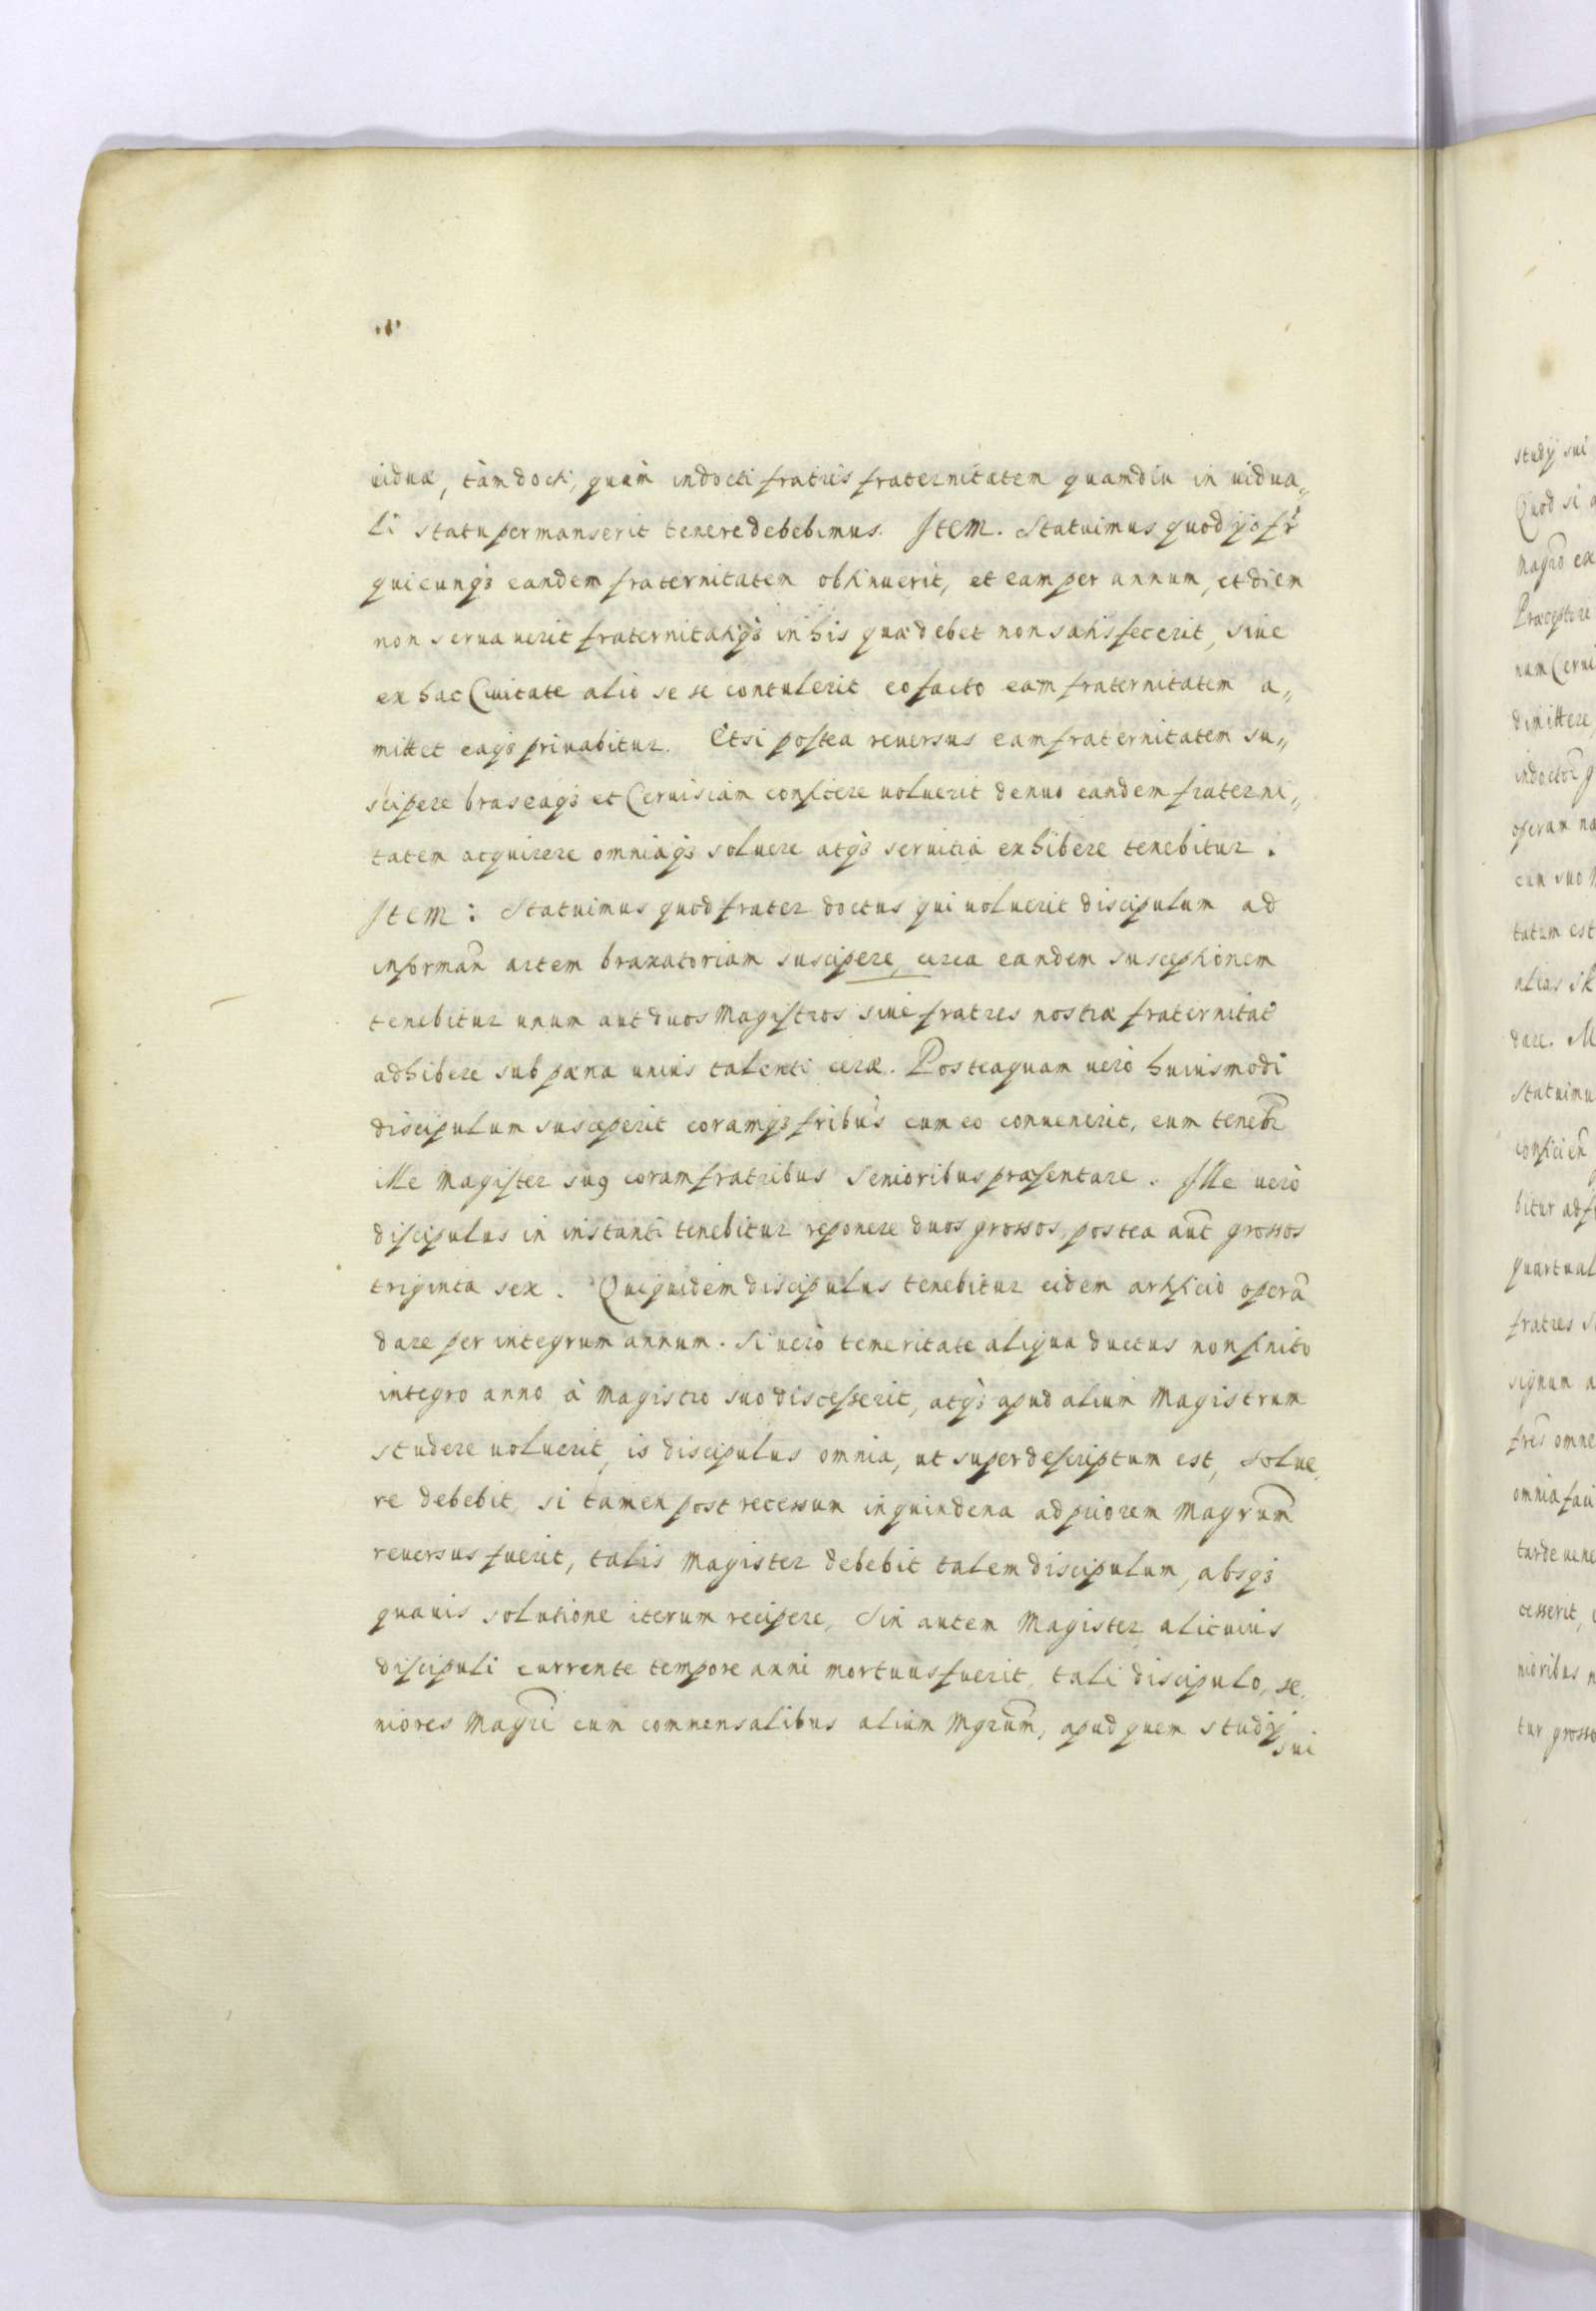 uiduæ, tàm docti, quàm indocti fratris fraternitatem quamdiu in uidua„
li statu permanserit tenere debebimus. Item. Statuimus quod
quicunqȝ eandem fraternitatem obtinuerit, et eam per annum, et diem
non seruauerit fraternitatiqȝ in his quæ debet non satisfecerit, siue
ex hac Ciuitate alio se se contulerit eo facto eam fraternitatem a„
mittet eaqȝ priuabitur. Etsi postea reuersus eam fraternitatem su„
scipere braseaqȝ et Ceruisiam conficere uoluerit denuo eandem fraterni„
tatem acquirere omniaqȝ soluere atqȝ seruitia exhibere tenebitur.
Item: Statuimus quod frater doctus qui uoluerit discipulum ad
informan artem braxatoriam suscipere, circa eandem susceptionem
tenebitur unum aut duos Magistros siue fratres nostræ fraternitat
adhibere sub pæna unius talenti ceræ. Posteaquam uerò huiusmodi
discipulum susceperit coramqȝ fribus cum eo conuenerit, eum tenebr
ille Magister suꝯ coram fratribus Senioribus præsentare. Ille uerò
discipulus in instanti tenebitur reponere duos grossos, postea aut grossos
triginta sex. Quiquidem discipulus tenebitur eidem artificio operã
dare per integrum annum. Si uerò temeritate aliqua ductus non finito
integro anno à Magistro suo discesserit, atqȝ apud alium Magistrum
studere uoluerit, is discipulus omnia, ut superdescriptum est, solue„
re debebit, si tamen post recessum in quindena ad priorem Magrum
reuersus fuerit, talis Magister debebit talem discipulum, absqȝ
quauis solutione iterum recipere, Sin autem Magister alicuius
discipuli currente tempore anni mortuus fuerit, tali discipulo, se„
niores Magri cum commensalibus alium Mgrum, apud quem studij
sui
studij sui
Quod si
Magro
Præceptore
nam Cerui
dimittere,
indoctor
operam na
cum suo
tatum est
alias
dare.
Statuimu
conficien
bitur adf
quartual
fratres
signum a
fres omne
omnia
tarde uene
cesserit,
nioribus
tur grosso